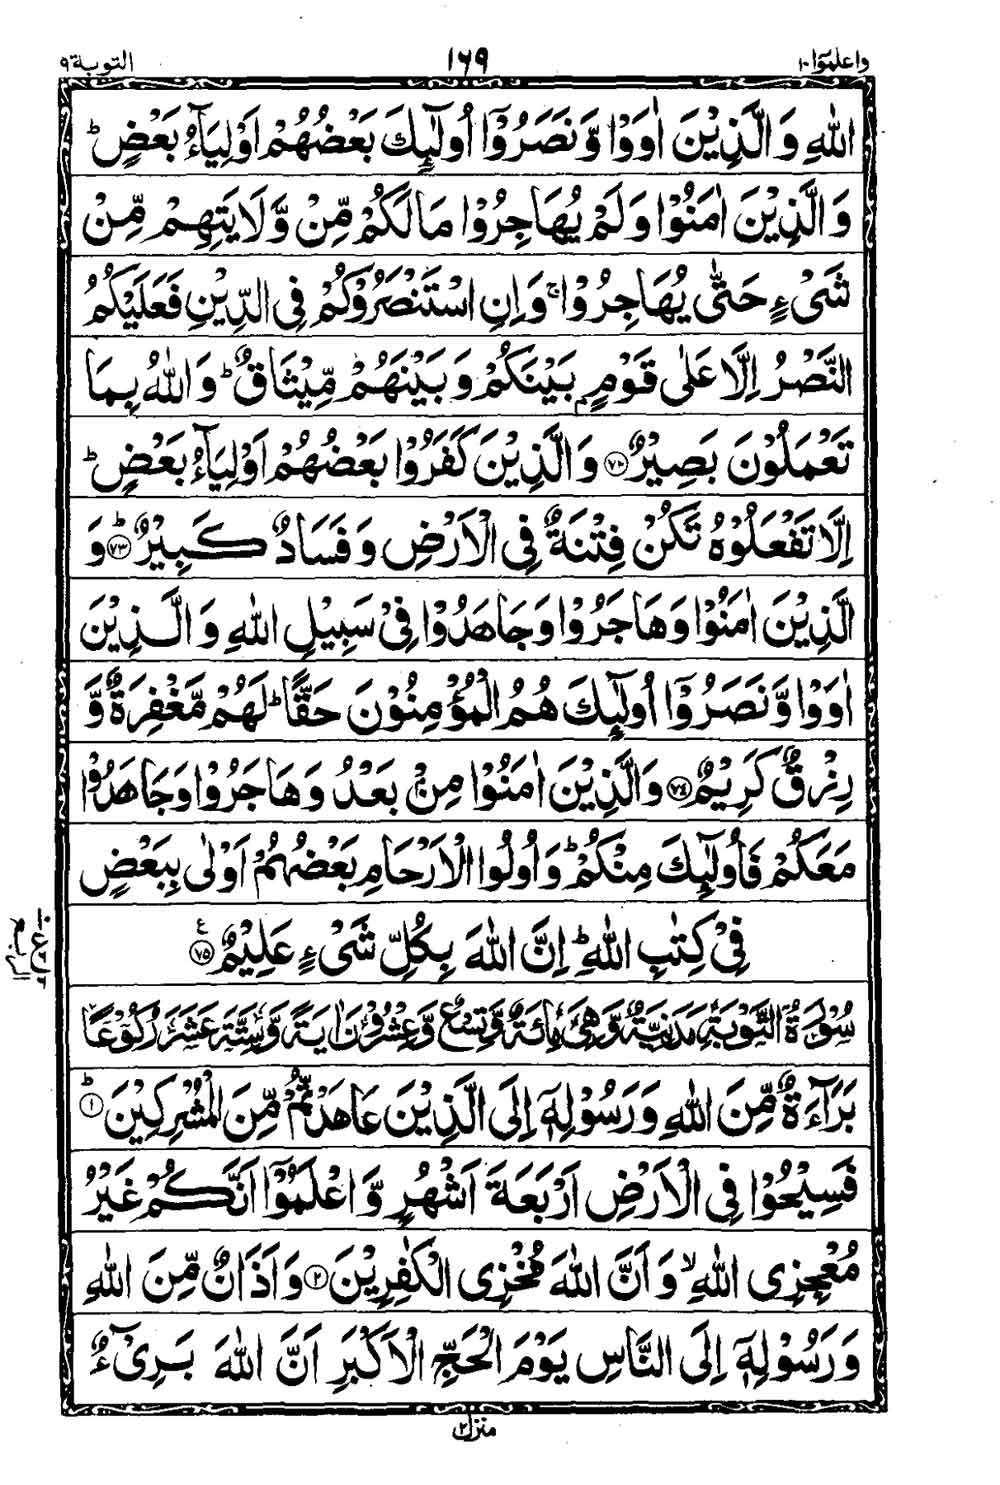 واعلموا ١٠ ١٦٩ التوبة ٩
اللهِ وَالَّذِيْنَ اٰوَوْا وَّنَصَرُوْۤا اُولٰٓئِكَ بَعْضُهُمْ اَوْلِيَآءُ بَعْضٍ ؕ
وَالَّذِيْنَ اٰمَنُوْا وَلَمْ يُهَاجِرُوْا مَا لَكُمْ مِّنْ وَّلَايَتِهِمْ مِّنْ
شَىْءٍ حَتّٰى يُهَاجِرُوْا ۚ وَاِنِ اسْتَنْصَرُوْكُمْ فِى الدِّيْنِ فَعَلَيْكُمُ
النَّصْرُ اِلَّا عَلٰى قَوْمٍۭ بَيْنَكُمْ وَبَيْنَهُمْ مِّيْثَاقٌ ؕ وَاللهُ بِمَا
تَعْمَلُوْنَ بَصِيْرٌ ﴿٧٢﴾ وَالَّذِيْنَ كَفَرُوْا بَعْضُهُمْ اَوْلِيَآءُ بَعْضٍ ؕ
اِلَّا تَفْعَلُوْهُ تَكُنْ فِتْنَةٌ فِى الْاَرْضِ وَفَسَادٌ كَبِيْرٌ ؕ ﴿٧٣﴾ وَ
الَّذِيْنَ اٰمَنُوْا وَهَاجَرُوْا وَجَاهَدُوْا فِىْ سَبِيْلِ اللهِ وَالَّذِيْنَ
اٰوَوْا وَّنَصَرُوْۤا اُولٰٓئِكَ هُمُ الْمُؤْمِنُوْنَ حَقًّا ؕ لَهُمْ مَّغْفِرَةٌ وَّ
رِزْقٌ كَرِيْمٌ ﴿٧٤﴾ وَالَّذِيْنَ اٰمَنُوْا مِنْۢ بَعْدُ وَهَاجَرُوْا وَجَاهَدُوْا
مَعَكُمْ فَاُولٰٓئِكَ مِنْكُمْ ؕ وَاُولُوا الْاَرْحَامِ بَعْضُهُمْ اَوْلٰى بِبَعْضٍ
فِىْ كِتٰبِ اللهِ ؕ اِنَّ اللهَ بِكُلِّ شَىْءٍ عَلِيْمٌ ﴿٧٥﴾ ع
سُوْرَةُ التَّوْبَةِ مَدَنِيَّةٌ وَّهِىَ مِائَةٌ وَّتِسْعٌ وَّعِشْرُوْنَ اٰيَةً وَّسِتَّةَ عَشَرَ رُكُوْعًا
بَرَآءَةٌ مِّنَ اللهِ وَرَسُوْلِهٖۤ اِلَى الَّذِيْنَ عَاهَدْتُّمْ مِّنَ الْمُشْرِكِيْنَ ؕ ﴿١﴾
فَسِيْحُوْا فِى الْاَرْضِ اَرْبَعَةَ اَشْهُرٍ وَّاعْلَمُوْۤا اَنَّكُمْ غَيْرُ
مُعْجِزِى اللهِ ۙ وَاَنَّ اللهَ مُخْزِى الْكٰفِرِيْنَ ﴿٢﴾ وَاَذَانٌ مِّنَ اللهِ
وَرَسُوْلِهٖۤ اِلَى النَّاسِ يَوْمَ الْحَجِّ الْاَكْبَرِ اَنَّ اللهَ بَرِىْٓءٌ
منزل ٢